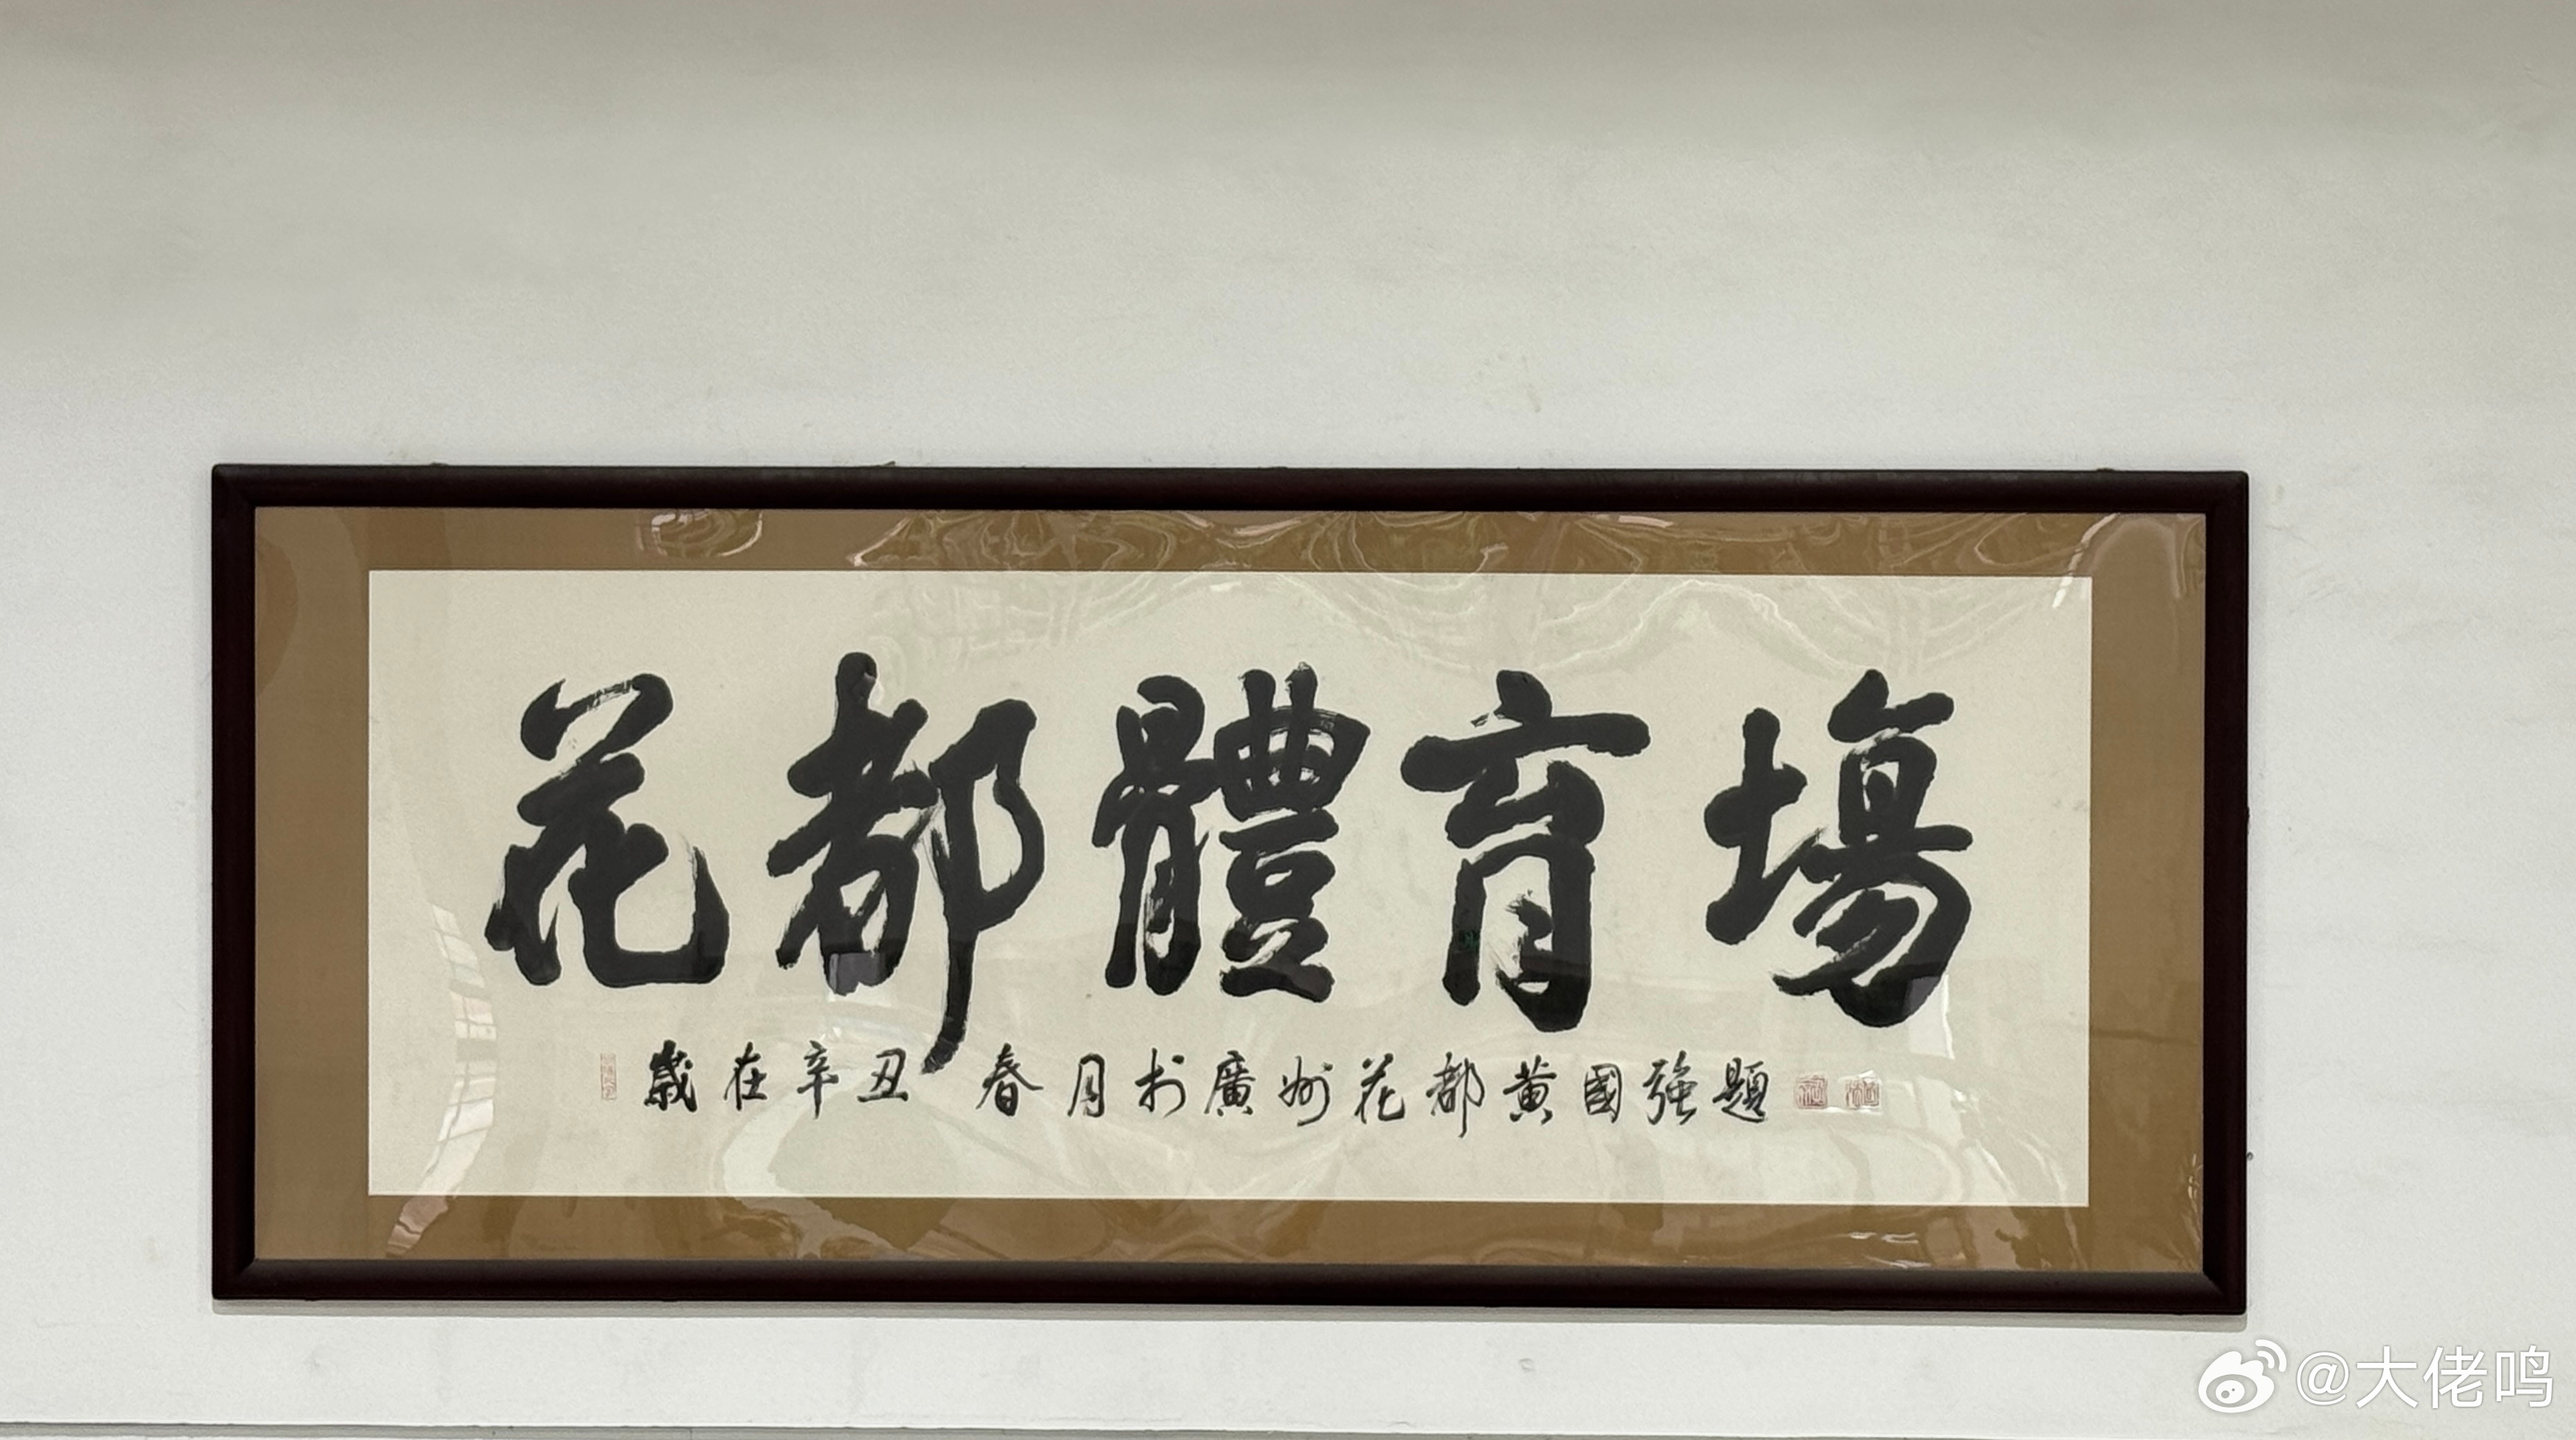 花都體育場
歲在辛丑 春月於廣州花都黄國強題
@大佬鸣